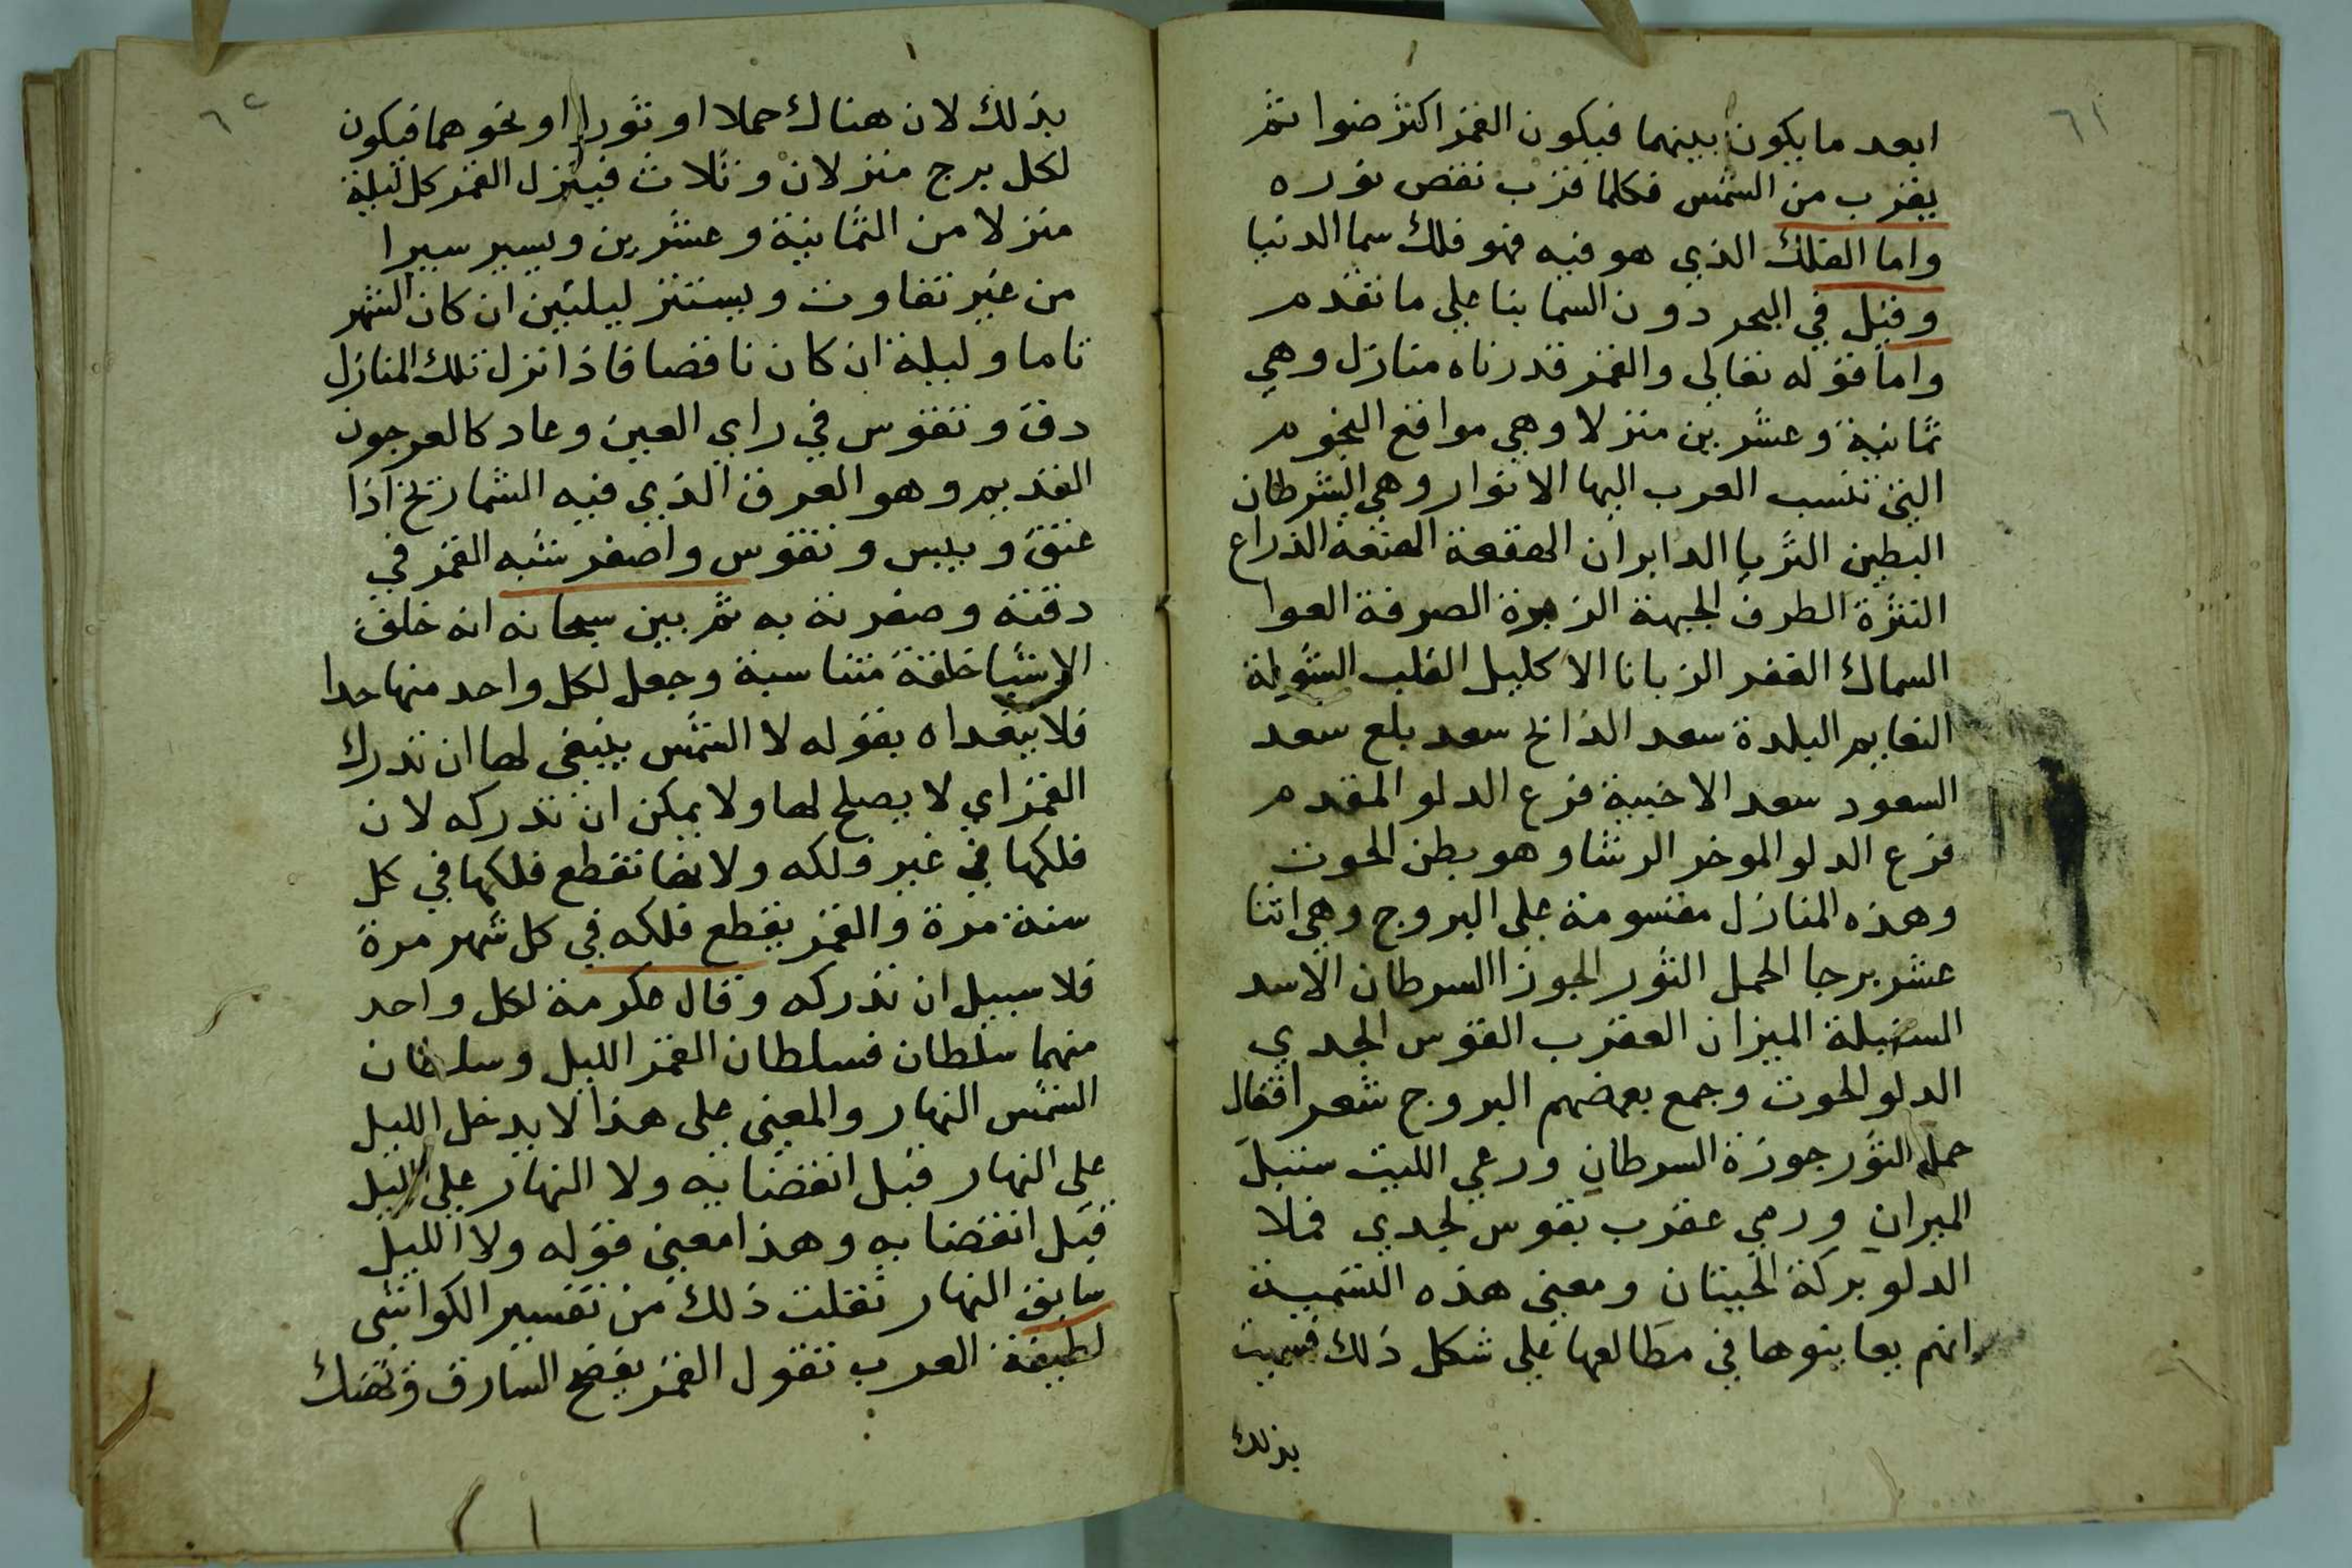 ٦١
ابعد ما يكون بينهما فيكون القمر اكثر ضوا ثم
يقرب من الشمس فكلما قرب نقص نوره
واما الفلك الذي هو فيه فهو فلك سما الدنيا
وقيل في البحر دون السما بنا علي ما تقدم
واما قوله تعالى والقمر قدرناه منازل وهي
ثمانية وعشرين منزلا وهي مواقع النجوم
التي تنسب العرب اليها الانوار وهي الشرطان
البطين الثريا الدابران الهقعة الهنعة الذراع
النثرة الطرف الجبهة الزبرة الصرفة العوا
السماك الغفر الزبانا الاكليل القلب الشولة
النعايم البلدة سعد الذابح سعد بلع سعد
السعود سعد الاخبية فرع الدلو المقدم
فرع الدلو الموخر الرشا وهو بطن الحوت
وهذه المنازل مقسومة على البروج وهي اثنا
عشر برجا الحمل الثور الجوزا السرطان الاسد
السنبلة الميزان العقرب القوس الجدي
الدلو الحوت وجمع بعضهم البروج شعرا فقال
حمل الثور جوزة السرطان ورعي الليث سنبل
الميزان ورمي عقرب بقوس لجدي فملا
الدلو بركة الحيتان ومعنى هذه التسمية
انهم يعاينوها في مطالعها علي شكل ذلك فسميت
بذلك
٦٢
بذلك لان هناك حملا او ثورا او نحوهما فيكون
لكل برج منزلان وثلاث فينزل القمر كل ليلة
منزلا من الثمانية وعشرين ويسير سيرا
من غير تفاوت ويستتر ليلتين ان كان الشهر
تاما وليلة ان كان ناقصا فاذا نزل تلك المنازل
دق وتقوس في راي العين وعاد كالعرجون
القديم وهو العرق الذي فيه الشماريخ اذا
عتق ويبس وتقوس واصفر شبه القمر في
دقته وصفرته به ثم بين سبحانه انه خلق
الاشيا خلقة متناسبة وجعل لكل واحد منها حدا
فلا يتعداه بقوله لا الشمس ينبغي لها ان تدرك
القمر اي لا يصلح لها ولا يمكن ان تدركه لان
فلكها في غير فلكه ولانها تقطع فلكها في كل
سنة مرة والقمر يقطع فلكه في كل شهر مرة
فلا سبيل ان تدركه وقال عكرمة لكل واحد
منهما سلطان فسلطان القمر الليل وسلطان
الشمس النهار والمعنى علي هذا لا يدخل الليل
علي النهار قبل انقضايه ولا النهار علي الليل
قبل انقضايه وهذا معنى قوله ولا الليل
سابق النهار نقلت ذلك من تفسير الكواشى
لطيفة العرب تقول القمر يفضح السارق ويهتك